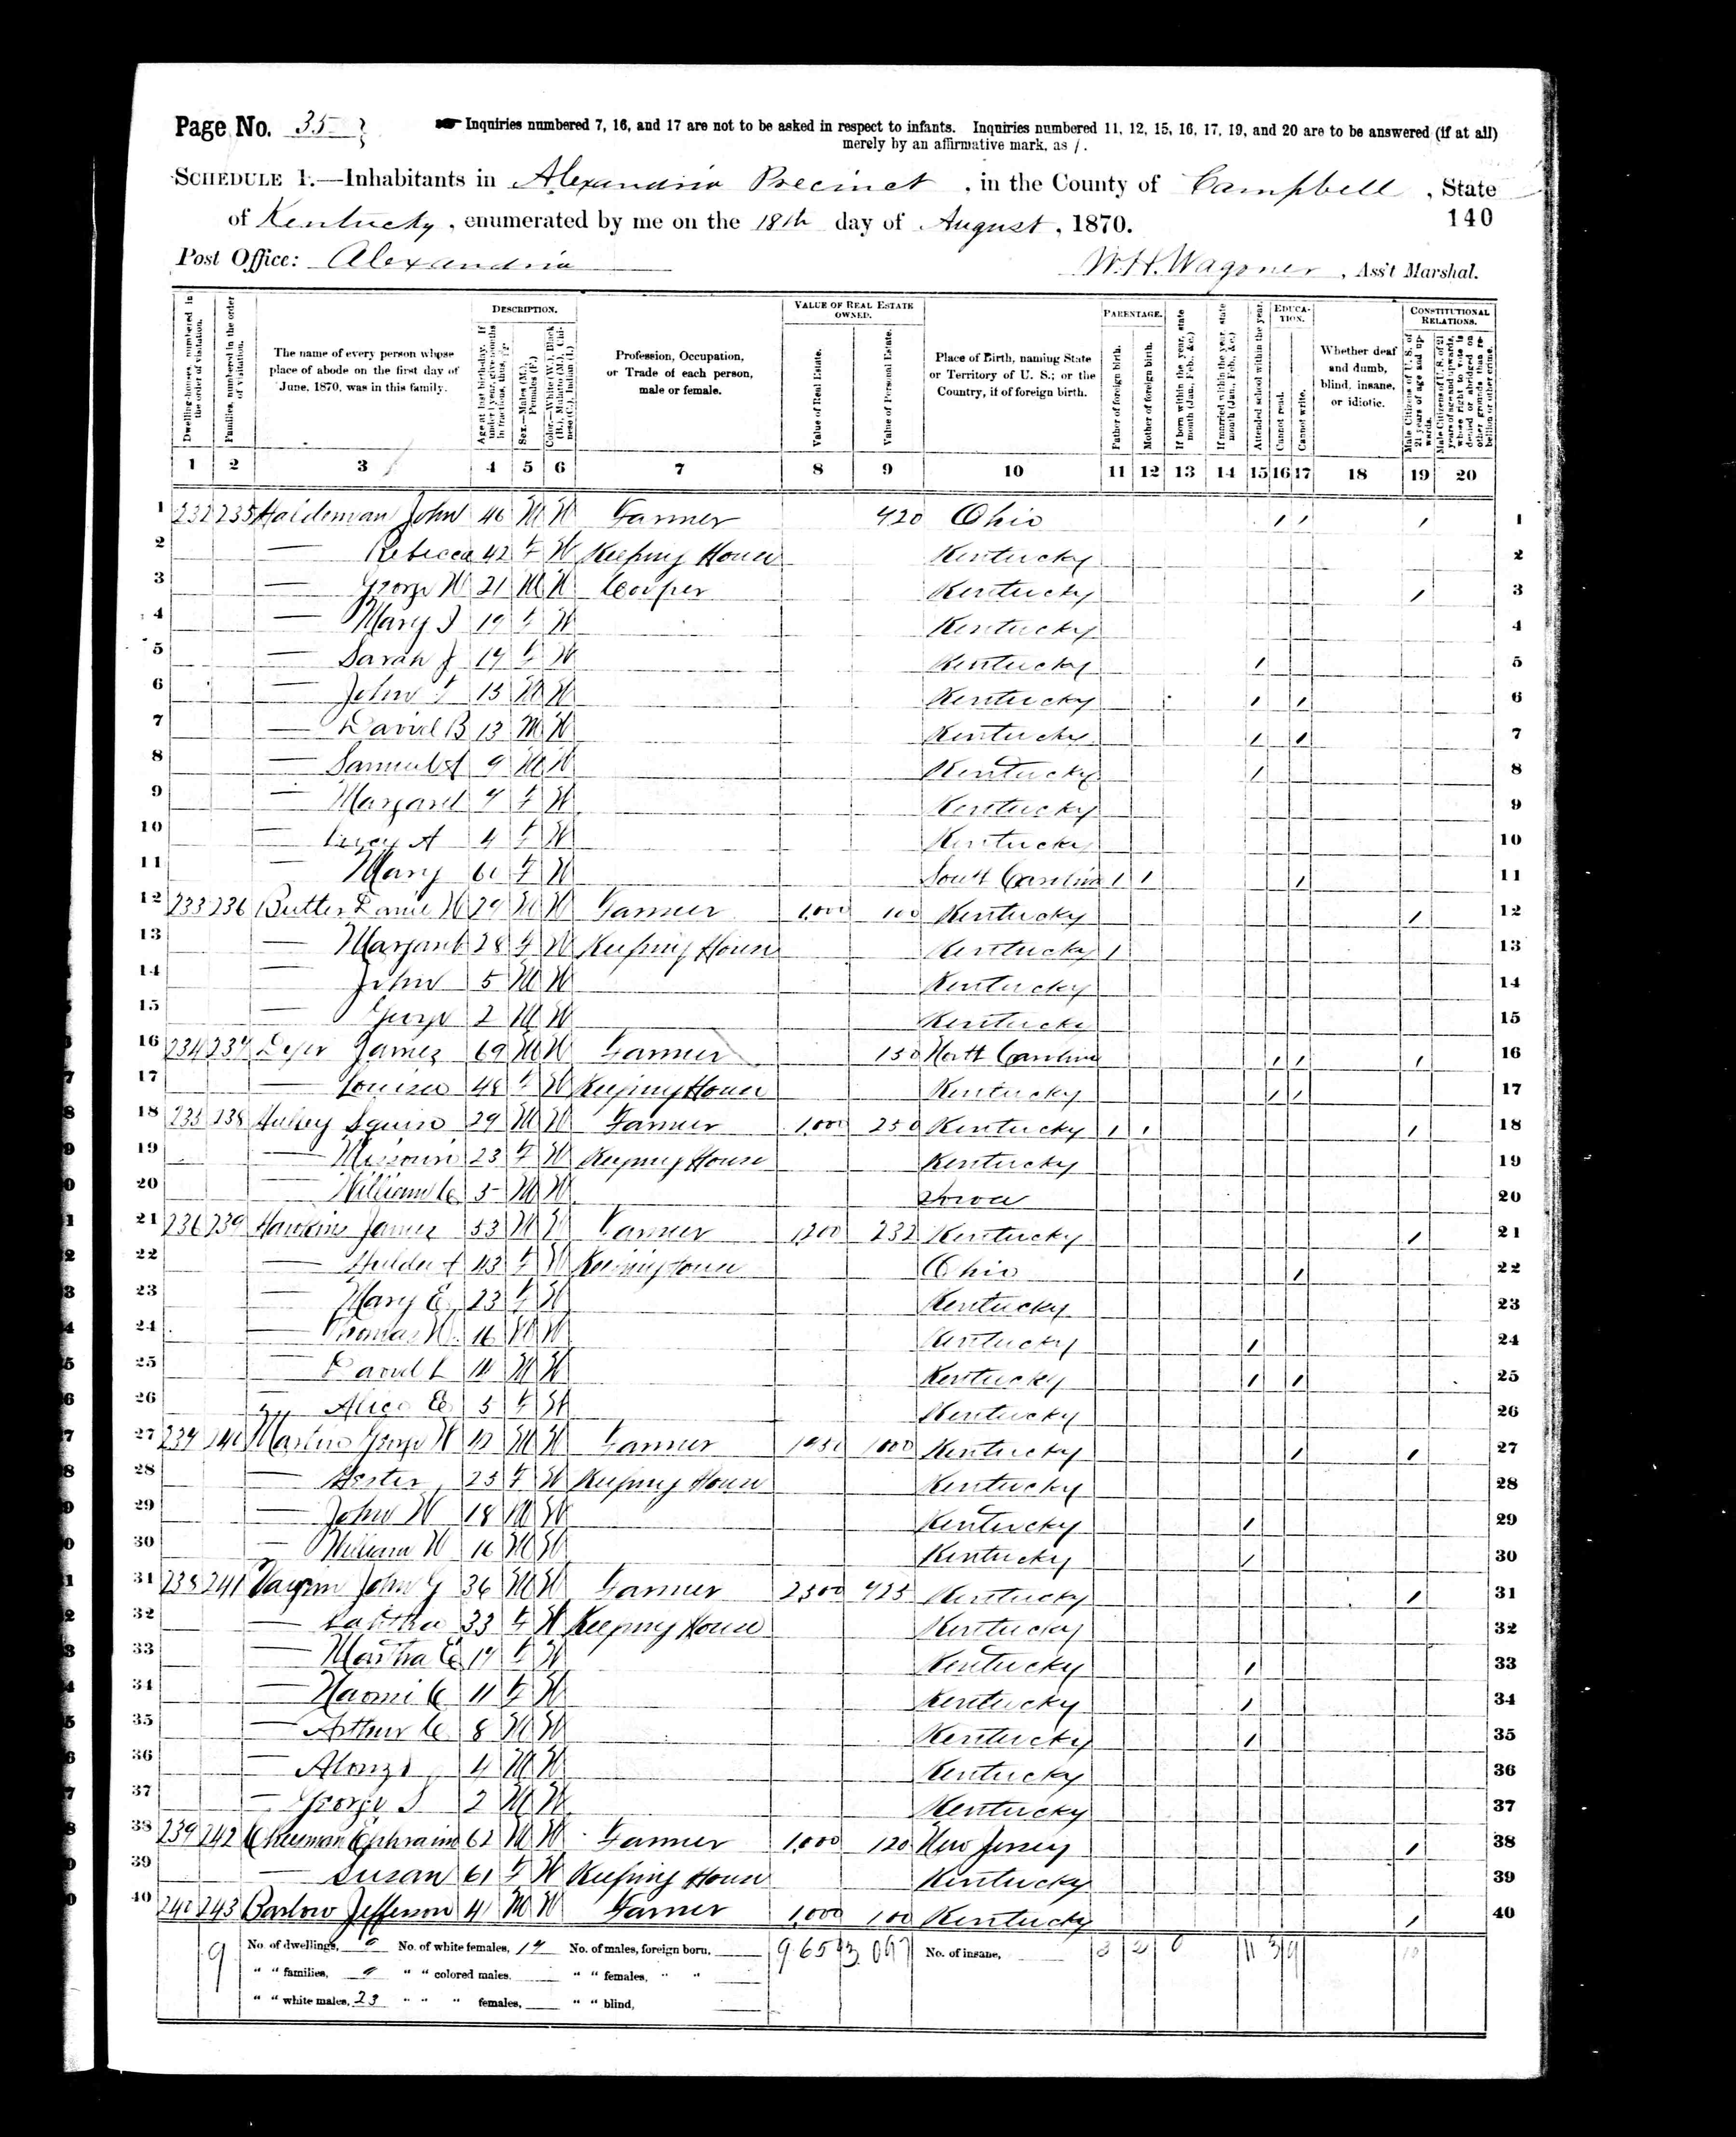 Page No. 35
Inquiries numbered 7, 16, and 17 are not to be asked in respect to infants. Inquiries numbered 11, 12, 15, 16, 17, 19, and 20 are to be answered (if at all)
merely by an affirmative mark, as /.
SCHEDULE 1.—Inhabitants in Alexandria Precinct, in the County of Campbell, State
of Kentucky, enumerated by me on the 18th day of August, 1870.
140
Post Office: Alexandria
W.H. Wagoner, Ass't Marshal.
Dwelling-houses, numbered in the order of visitation.
Families, numbered in the order of visitation.
The name of every person whose place of abode on the first day of June, 1870, was in this family.
DESCRIPTION.
Age at last birthday. If under 1 year, give months in fractions, thus,
Sex.—Males (M.), Females (F.)
Color.—White (W.), Black (B.), Mulatto (M.), Chinese (C.), Indian (I.)
Profession, Occupation, or Trade of each person, male or female.
VALUE OF REAL ESTATE OWNED.
Value of Real Estate.
Value of Personal Estate.
Place of Birth, naming State or Territory of U. S.; or the Country, if of foreign birth.
PARENTAGE.
Father of foreign birth.
Mother of foreign birth.
If born within the year, state month (Jan., Feb., &c.)
If married within the year, state month (Jan., Feb., &c.)
Attended school within the year.
EDUCATION.
Cannot read.
Cannot write.
Whether deaf and dumb, blind, insane, or idiotic.
CONSTITUTIONAL RELATIONS.
Male Citizens of U. S. of 21 years of age and upwards.
Male Citizens of U. S. of 21 years of age and upwards, whose right to vote is denied or abridged on other grounds than rebellion or other crime.
1 2 3 4 5 6 7 8 9 10 11 12 13 14 15 16 17 18 19 20
1 232 235 Haideman John 46 M W Farmer 420 Ohio / / / 1
2 — Rebecca 42 F W Keeping House Kentucky 2
3 — George W 21 M W Cooper Kentucky / 3
4 — Mary J 19 F W Kentucky 4
5 — Sarah J 17 F W Kentucky / 5
6 — John 15 M W Kentucky / / 6
7 — David B 13 M W Kentucky / / 7
8 — Samuel 9 M W Kentucky / 8
9 — Margaret 7 F W Kentucky 9
10 — A 4 F W Kentucky 10
11 — Mary 61 F W South Carolina / / / 11
12 233 236 Butler Daniel W 29 M W Farmer 1,000 100 Kentucky / 12
13 — Margaret 28 F W Keeping House Kentucky / 13
14 — John 5 M W Kentucky 14
15 — George 2 M W Kentucky 15
16 234 237 James 69 M W Farmer 150 North Carolina / / / 16
17 — Louisa 48 F W Keeping House Kentucky / / 17
18 235 238 Squire 29 M W Farmer 1,000 250 Kentucky / / / 18
19 — Missouri 23 F W Keeping House Kentucky 19
20 — William C 5 M W Iowa 20
21 236 239 Hawkins James 53 M W Farmer 1,200 232 Kentucky / 21
22 — 43 F W Keeping House Ohio / 22
23 — Mary E 23 F W Kentucky 23
24 — Thomas W 16 M W Kentucky / 24
25 — David L M W Kentucky / / 25
26 — Alice E 5 F W Kentucky 26
27 237 240 Martin George W M W Farmer 1000 Kentucky / / 27
28 — Hester 25 F W Keeping House Kentucky 28
29 — John W 18 M W Kentucky / 29
30 — William W 16 M W Kentucky / 30
31 238 241 John G 36 M W Farmer 2500 425 Kentucky / 31
32 — Tabitha 33 F W Keeping House Kentucky 32
33 — Martha E F W Kentucky / 33
34 — Naomi C 11 F W Kentucky / 34
35 — Arthur C 8 M W Kentucky / 35
36 — Alonzo 4 M W Kentucky 36
37 — George S 2 M W Kentucky 37
38 239 242 Cheesman Ephraim 62 M W Farmer 1,000 120 New Jersey / 38
39 — Susan 61 F W Keeping House Kentucky 39
40 240 243 Barlow Jefferson 41 M W Farmer 1,000 100 Kentucky / 40
9 No. of dwellings, 9 No. of white females, 17 No. of males, foreign born, No. of insane, 3 2 0 11 10
" " families, 9 " " colored males, " " females, " "
" " white males, 23 " " " females, " " blind,